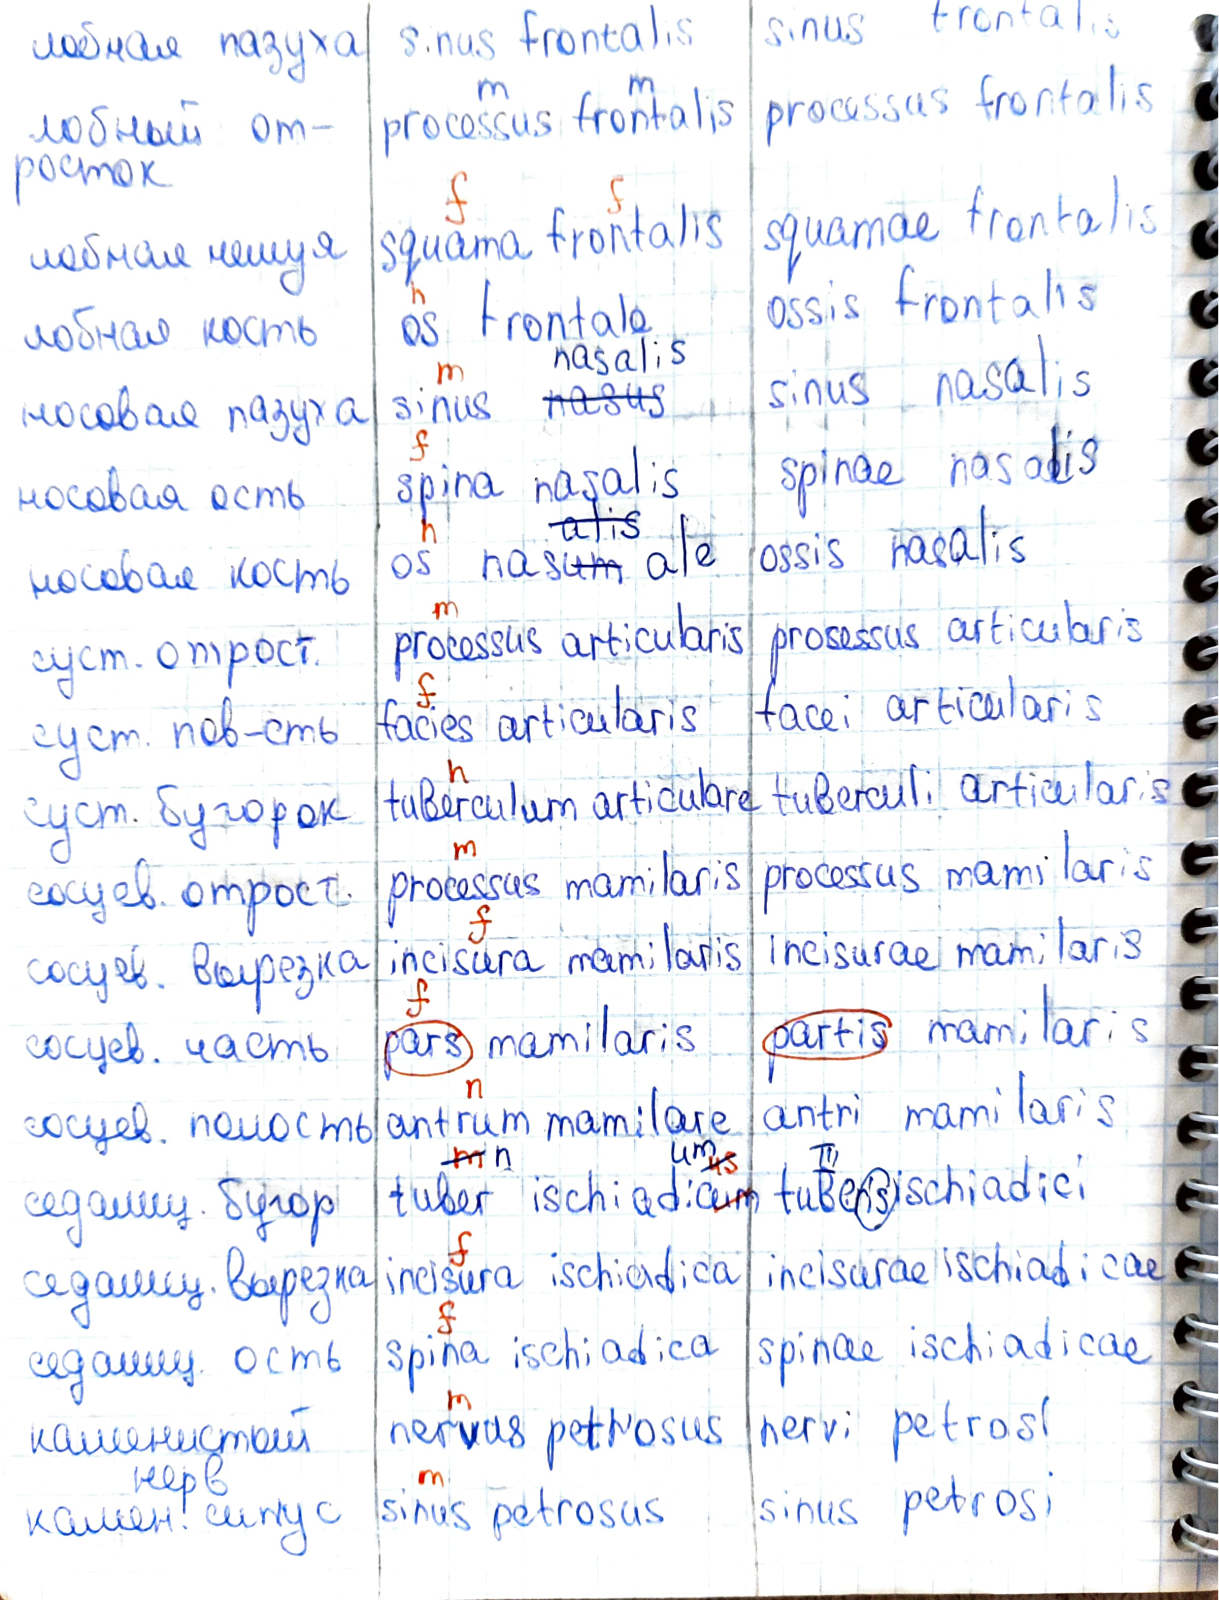 лобная пазуха sinus frontalis sinus frontalis
m m
лобный от- processus frontalis processus frontalis
росток
f f
лобная чешуя squama frontalis squamae frontalis
n
лобная кость os frontale ossis frontalis
m nasalis
носовая пазуха sinus nasus sinus nasalis
f
носовая ость spina nasalis spinae nasalis
n alis
носовая кость os nasum ale ossis nasalis
m
суст. отрост. processus articularis prosessus articularis
f
суст. пов-сть facies articularis facei articularis
n
суст. бугорок tuberculum articulare tuberculi articularis
m
сосцев. отрост. processus mamilaris processus mamilaris
f
сосцев. вырезка incisura mamilaris incisurae mamilaris
f
сосцев. часть pars mamilaris partis mamilaris
n
сосцев. полость antrum mamilare antri mamilaris
m n um us III
седалищ. бугор tuber ischiadicum tuberis ischiadici
f
седалищ. вырезка incisura ischiadica incisurae ischiadicae
f
седалищ. ость spina ischiadica spinae ischiadicae
m
каменистый nervus petrosus nervi petrosi
нерв m
камен. синус sinus petrosus sinus petrosi